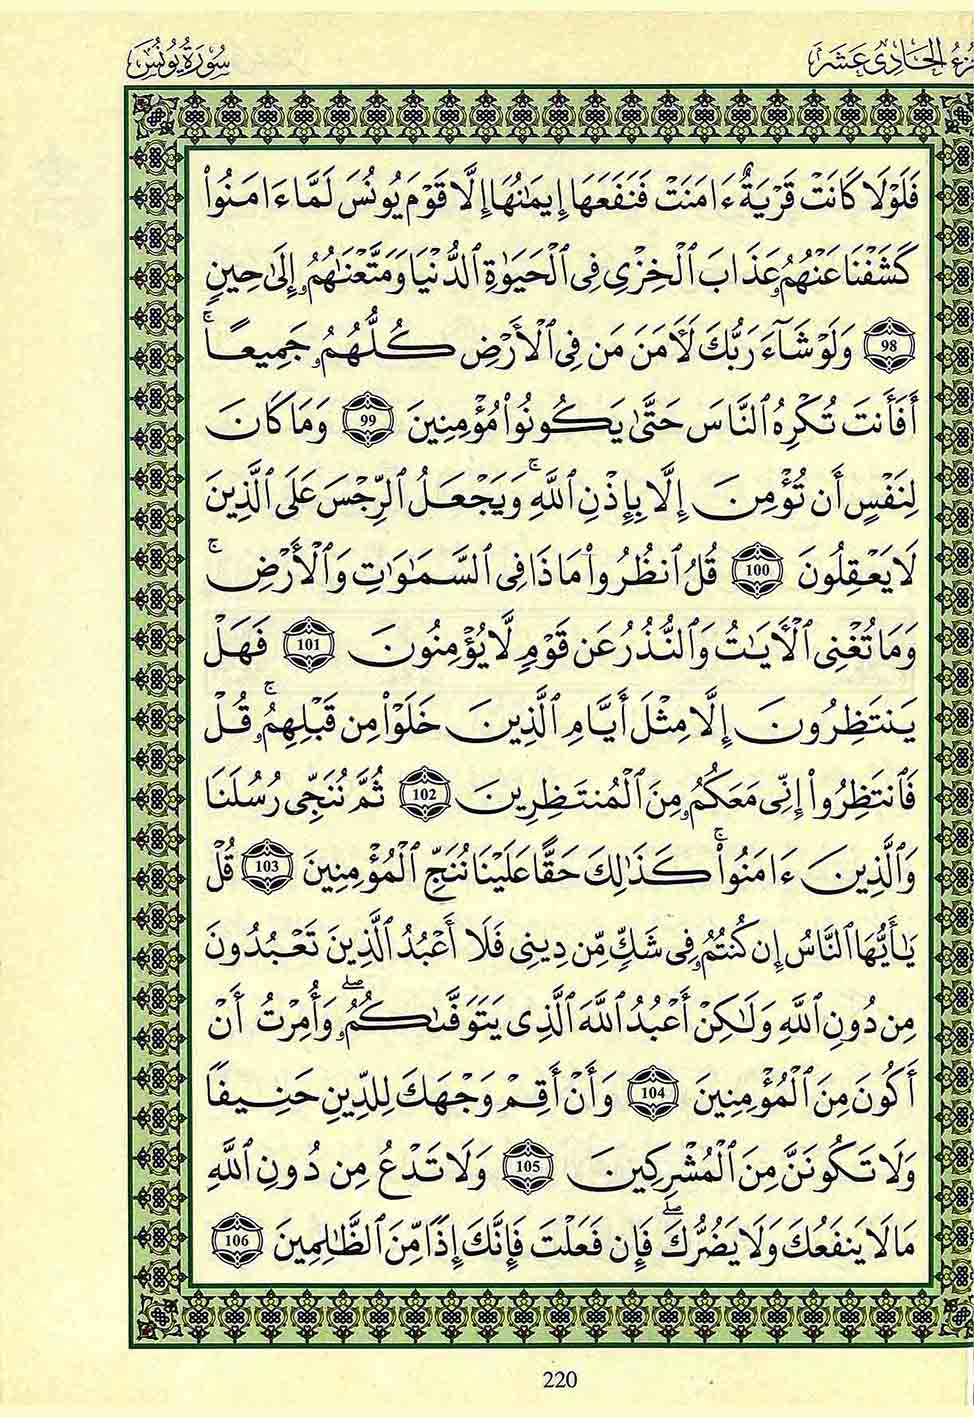 الجزء الحادي عشر
سورة يونس
فَلَوْلَا كَانَتْ قَرْيَةٌ ءَامَنَتْ فَنَفَعَهَا إِيمَٰنُهَا إِلَّا قَوْمَ يُونُسَ لَمَّا ءَامَنُوا۟
كَشَفْنَا عَنْهُمُۥ عَذَابَ ٱلْخِزْىِ فِى ٱلْحَيَوٰةِ ٱلدُّنْيَا وَمَتَّعْنَٰهُمُۥ إِلَىٰ حِينٍ
98 وَلَوْ شَآءَ رَبُّكَ لَأٓمَنَ مَن فِى ٱلْأَرْضِ كُلُّهُمُۥ جَمِيعًا ۚ
أَفَأَنتَ تُكْرِهُ ٱلنَّاسَ حَتَّىٰ يَكُونُوا۟ مُؤْمِنِينَ 99 وَمَا كَانَ
لِنَفْسٍ أَن تُؤْمِنَ إِلَّا بِإِذْنِ ٱللَّهِ ۚ وَيَجْعَلُ ٱلرِّجْسَ عَلَى ٱلَّذِينَ
لَا يَعْقِلُونَ 100 قُلُ ٱنظُرُوا۟ مَاذَا فِى ٱلسَّمَٰوَٰتِ وَٱلْأَرْضِ ۚ
وَمَا تُغْنِى ٱلْأَيَٰتُ وَٱلنُّذُرُ عَن قَوْمٍ لَّا يُؤْمِنُونَ 101 فَهَلْ
يَنتَظِرُونَ إِلَّا مِثْلَ أَيَّامِ ٱلَّذِينَ خَلَوْا۟ مِن قَبْلِهِمُۥ ۚ قُلْ
فَٱنتَظِرُوٓا۟ إِنِّى مَعَكُمُۥ مِنَ ٱلْمُنتَظِرِينَ 102 ثُمَّ نُنَجِّى رُسُلَنَا
وَٱلَّذِينَ ءَامَنُوا۟ ۚ كَذَٰلِكَ حَقًّا عَلَيْنَا نُنَجِّ ٱلْمُؤْمِنِينَ 103 قُلْ
يَٰأَيُّهَا ٱلنَّاسُ إِن كُنتُمُۥ فِى شَكٍّ مِّن دِينِى فَلَا أَعْبُدُ ٱلَّذِينَ تَعْبُدُونَ
مِن دُونِ ٱللَّهِ وَلَٰكِنْ أَعْبُدُ ٱللَّهَ ٱلَّذِى يَتَوَفَّىٰكُمُۥ ۖ وَأُمِرْتُ أَنْ
أَكُونَ مِنَ ٱلْمُؤْمِنِينَ 104 وَأَنْ أَقِمْ وَجْهَكَ لِلدِّينِ حَنِيفًا
وَلَا تَكُونَنَّ مِنَ ٱلْمُشْرِكِينَ 105 وَلَا تَدْعُ مِن دُونِ ٱللَّهِ
مَا لَا يَنفَعُكَ وَلَا يَضُرُّكَ ۖ فَإِن فَعَلْتَ فَإِنَّكَ إِذًا مِّنَ ٱلظَّٰلِمِينَ 106
220